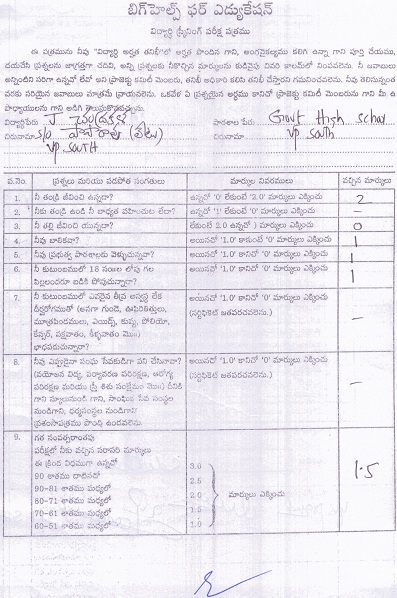 బిగ్‌హెల్ప్ ఫర్ ఎడ్యుకేషన్
విద్యార్థి స్క్రీనింగ్ పరీక్ష పత్రము
ఈ పత్రమును నీవు "విద్యార్థి అర్హత తనిఖీ"లో అర్హత పొందిన గాని, అంగవైకల్యము కలిగి ఉన్నా గాని పూర్తి చేయుము,
దయచేసి ప్రశ్నలను జాగ్రత్తగా చదివి, అన్ని ప్రశ్నలకు నీకొచ్చిన మార్కులను కుడివైపు చివరి కాలమ్‌లో నింపవలెను. నీ జవాబులు
అన్నింటిని సరిగా ఉన్నవో లేవో అని ప్రాజెక్టు కమిటీ మెంబరు, తనిఖీ అధికారి కలసి తనిఖీ చేస్తారని గమనించవలెను. నీవు తెలిసినంత
వరకు సరియైన జవాబులు మాత్రమే వ్రాయవలెను. ఒకవేళ ఏ ప్రశ్నయైన అర్థము కానిచో ప్రాజెక్టు కమిటీ మెంబరును గాని మీ ఉ
పాధ్యాయులను గాని అడిగి తెలుసుకొనవచ్చును.
విద్యార్థిపేరు J. పాఠశాల పేరు Govt High School
చిరునామా S/o చిరునామా VP South
VP. South
వ.నెం. ప్రశ్నలు మరియు చదవోత సంగతులు మార్కుల వివరములు వచ్చిన మార్కులు
1. నీ తండ్రి జీవించి ఉన్నాడా? ఉన్నచో '0' లేకుంటే '2.0' మార్కులు ఎక్కించు 2
2. నీకు తండ్రి ఉండి నీ బాధ్యత వహించుట లేదా? ఉన్నచో '1' లేకుంటే '0' మార్కులు ఎక్కించు –
3. నీ తల్లి జీవించి యున్నదా? లేకుంటే 2.0 ఉన్నచో 0 మార్కులు ఎక్కించు 0
4. నీవు బాలికవా? అయినచో '1.0' కాకుంటే '0' మార్కులు ఎక్కించు 1
5. నీవు ప్రభుత్వ పాఠశాలకు వెళ్ళుచున్నావా? అయినచో '1.0' కానిచో '0' మార్కులు ఎక్కించు 1
6. నీ కుటుంబములో 18 సం॥ల లోపు గల పిల్లలందరూ బడికి పోవుచున్నారా? అయినచో '1.0' కానిచో '0' మార్కులు ఎక్కించు 1
7. నీ కుటుంబములో ఎవరికైన తీవ్ర అస్వస్థ లేక
దీర్ఘరోగముతో (అనగా గుండె, ఊపిరితిత్తులు,
మూత్రపిండములు, ఎయిడ్స్, కుష్ఠు, పోలియో,
కేన్సర్, పక్షవాతం, కీళ్ళవాతం మొ॥)
బాధపడుచున్నారా?
అయినచో '1.0' కానిచో '0' మార్కులు ఎక్కించు
(సర్టిఫికెట్ జతపరచవలెను.) –
8. నీవు ఎప్పుడైనా సంఘ సేవకుడిగా పని చేసినావా?
(వయోజన విద్య, పర్యావరణ పరిరక్షణ, ఆరోగ్య
పరిరక్షణ మరియు స్త్రీ శిశు సంక్షేమం మొ॥) దీనికి
గాని స్కూలునుండి గాని, సాంఘిక సేవ సంస్థల
నుండిగాని, ధర్మసంస్థల నుండిగాని
ప్రశంసాపత్రము పొంది ఉండవలెను.
అయినచో '1.0' కానిచో '0' మార్కులు ఎక్కించు
(సర్టిఫికెట్ జతపరచవలెను.) –
9. గత సంవత్సరాంతపు
పరీక్షలో నీకు వచ్చిన సరాసరి మార్కులు
ఈ క్రింద విధముగా ఉన్నచో
90 శాతము దాటినచో 3.0
90-81 శాతము మధ్యలో 2.5
80-71 శాతము మధ్యలో 2.0
70-61 శాతము మధ్యలో 1.5
60-51 శాతము మధ్యలో 1.0
మార్కులు ఎక్కించు
1.5